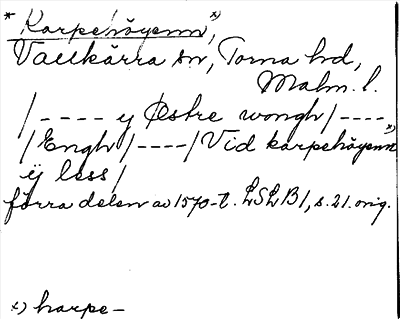 * Karpehöyenn x),
Vallkärra sn, Torna hd,
Malm. l.
/---- y Østre wongh/----
/Engh/----/Vid karpehöyenn x)
ÿ less/
förra delen av 1570-t. LSLB1, s. 21. orig.
x) harpe-